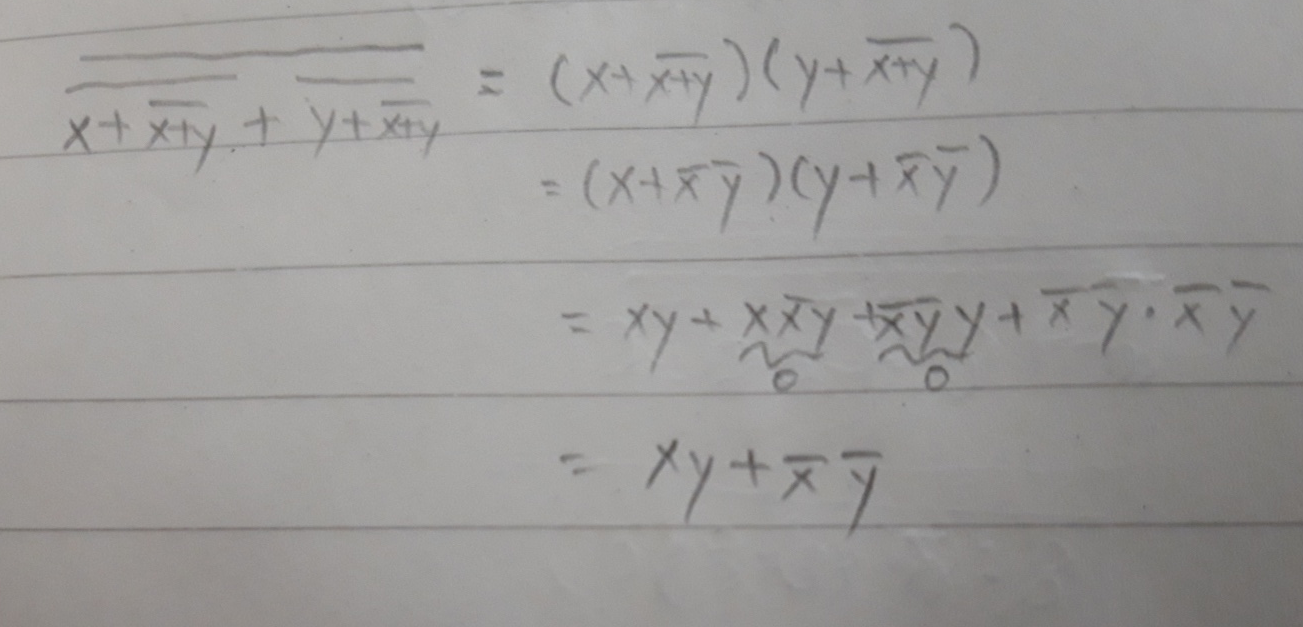 $\overline{\overline{x+\overline{x+y}}+\overline{y+\overline{x+y}}} = (x+\overline{x+y})(y+\overline{x+y})$
$= (x+\overline{x}\,\overline{y})(y+\overline{x}\,\overline{y})$
$= xy + \underset{0}{x\overline{x}y} + \underset{0}{\overline{x}\,\overline{y}y} + \overline{x}\,\overline{y}\cdot\overline{x}\,\overline{y}$
$= xy + \overline{x}\,\overline{y}$